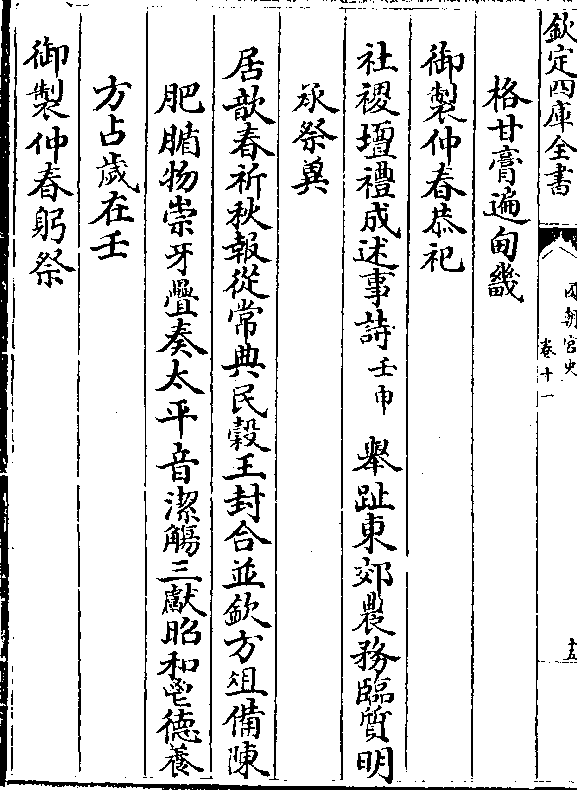 欽定四庫全書
國朝宮史
卷十一
十五
格甘膏遍甸畿
御製仲春恭祀
社稷壇禮成述事詩壬申 舉趾東郊農務臨質明
承祭奠
居歆春祈秋報從常典民穀王封合並欽方俎備陳
肥腯物崇牙疊奏太平音潔觴三獻昭和邕德養
方占歲在壬
御製仲春躬祭